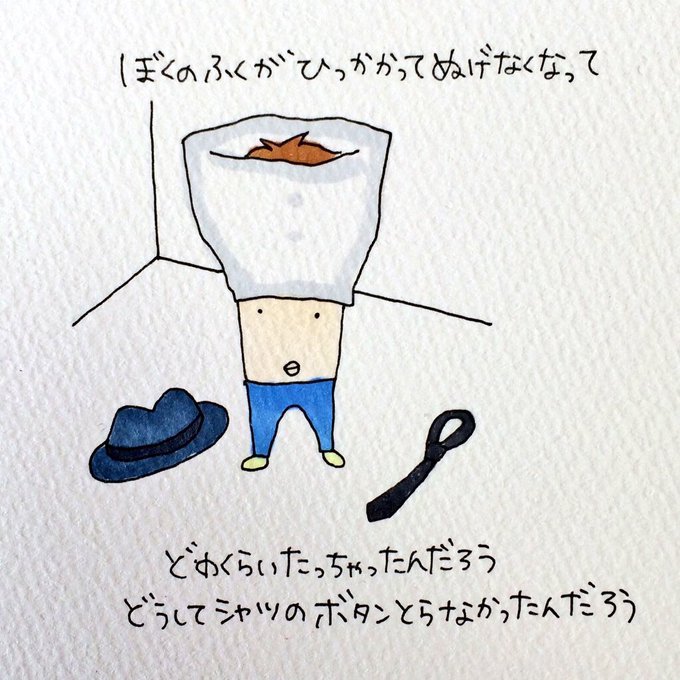 ぼくのふくが ひっかかってぬげなくなって
どのくらいたっちゃったんだろう
どうしてシャツのボタンとらなかったんだろう